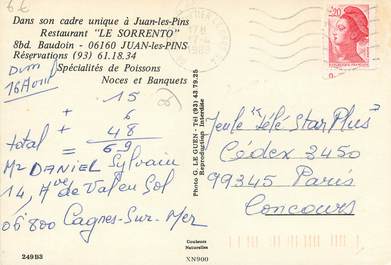 6€
Dans son cadre unique à Juan-les-Pins
Restaurant "LE SORRENTO"
8bd. Baudoin - 06160 JUAN-les-PINS
Réservations (93) 61.18.34
Spécialités de Poissons
Noces et Banquets
16 Avril
15
+ 6
+ 48
total = 69
Mr DANIEL Sylvain
14, Ave de Val en Sol
06800 Cagnes-Sur-Mer
249B3
Photo G. LE GUEN - Tél (93) 43.79.25
Reproduction Interdite
Couleurs
Naturelles
XN900
2,20
Jeu le "Télé Star Plus"
Cédex 3450
99345 Paris
Concours